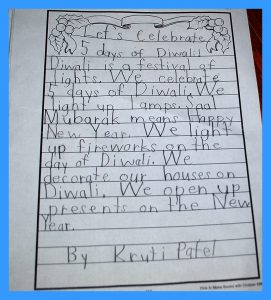 Let's Celebrate
5 days of Diwali
Diwali is a festival of
lights. We celebrate
5 days of Diwali. We
light up lamps. Saal
Mubarak means Happy
New Year. We light
up fireworks on the
day of Diwali. We
decorate our houses on
Diwali. We open up
presents on the New
Year.
By Kruti Patel